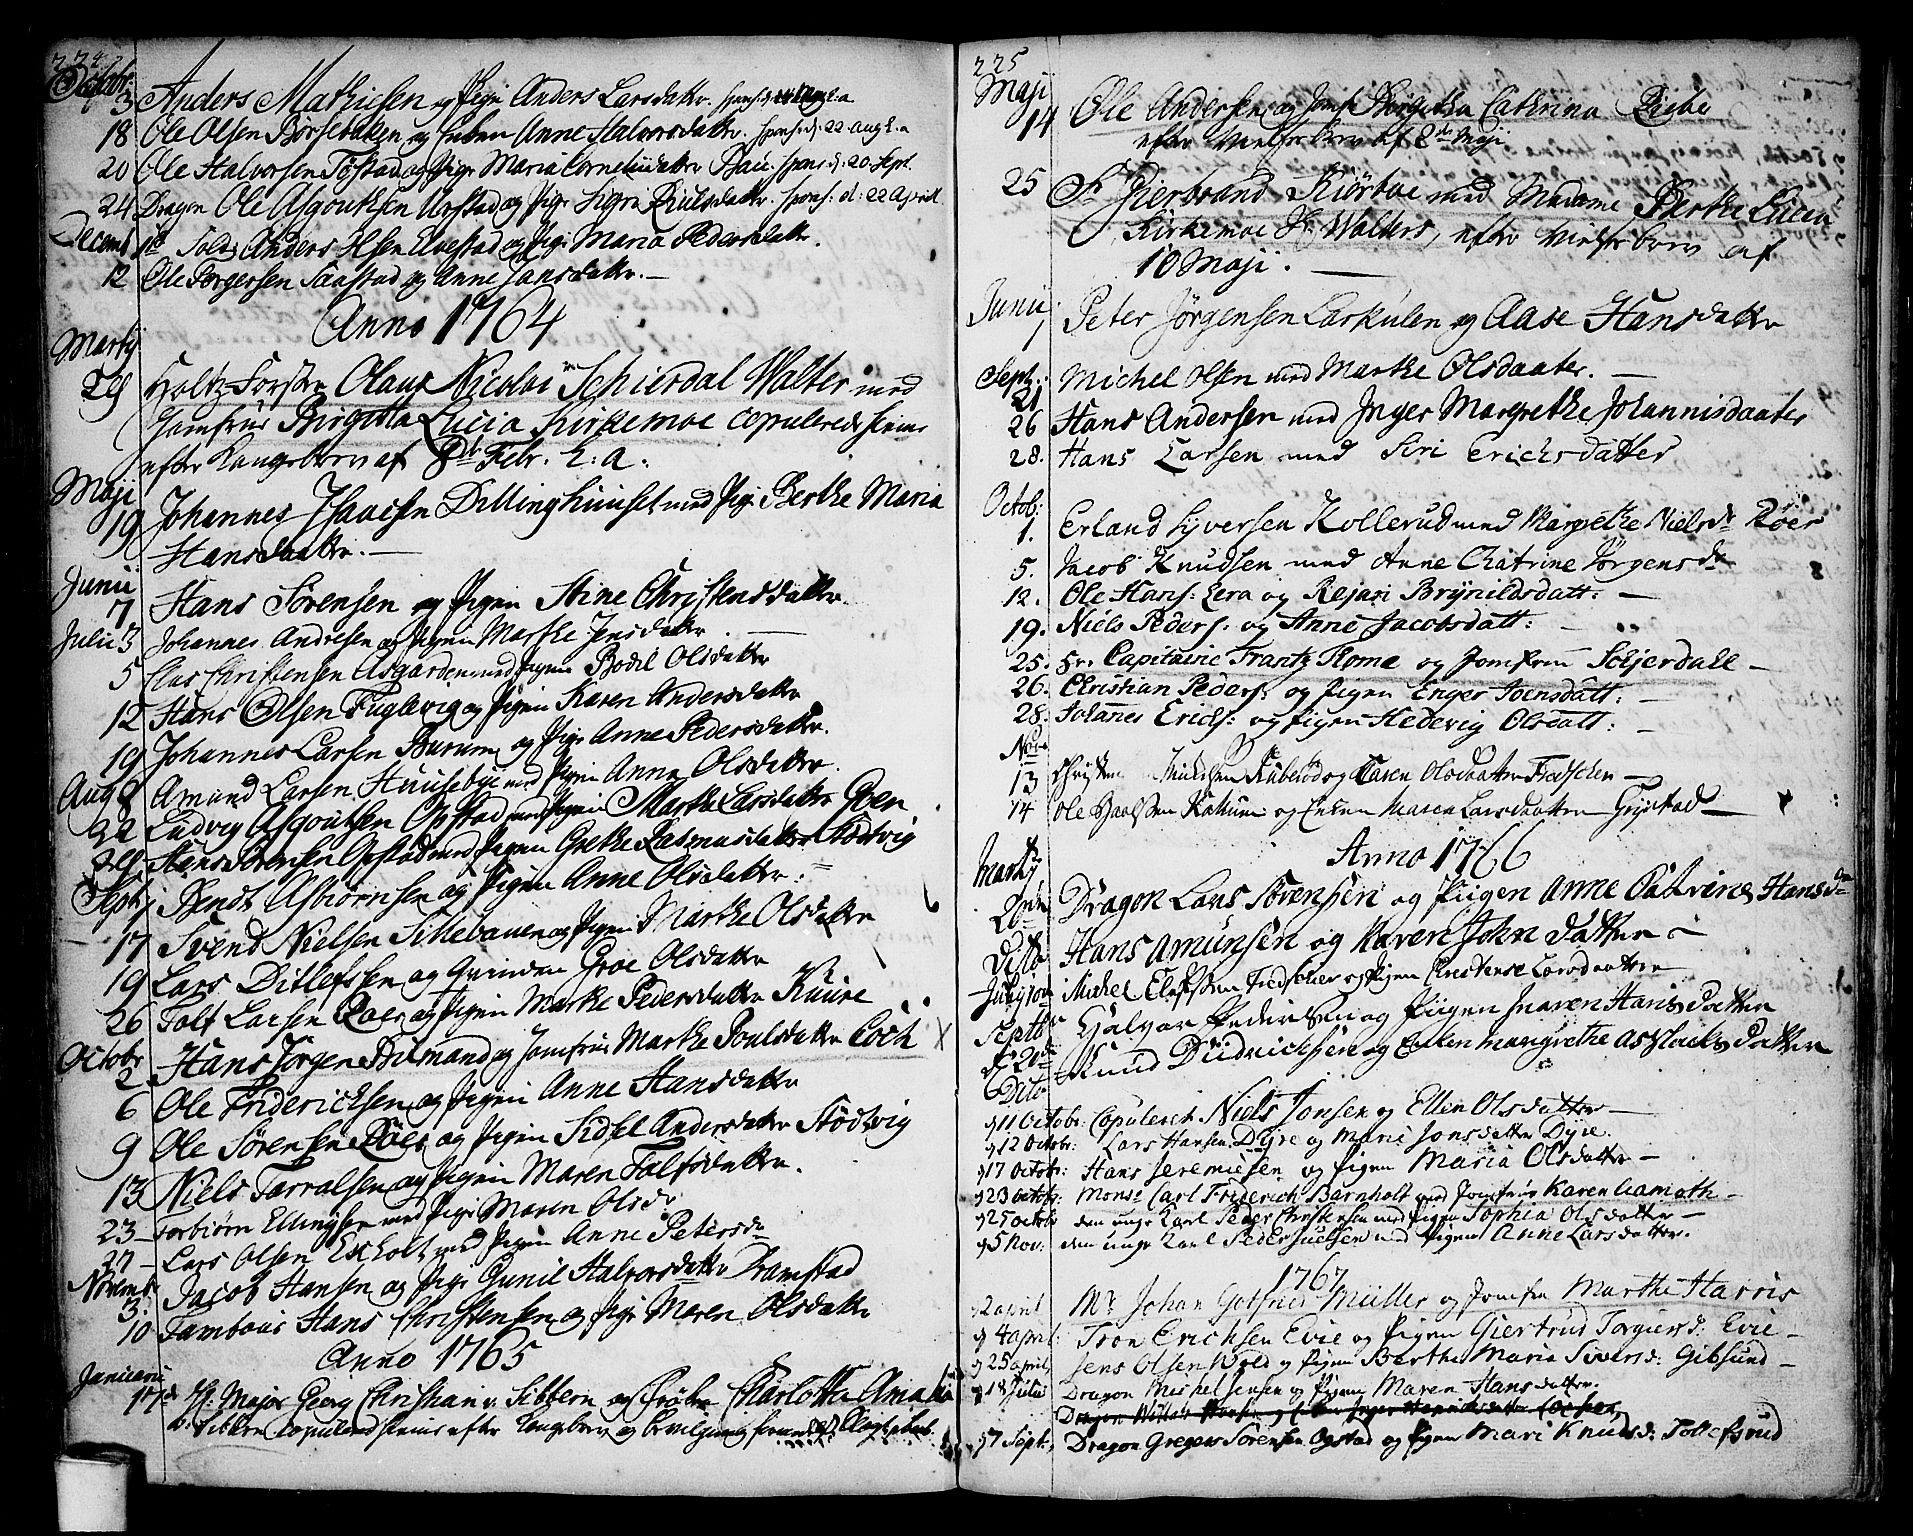 224.
Octobr.
3 Anders Mathiesen og Pige Anders Larsdattr. spons: d:
18 Ole Olsen Börsebaken og Enken Anne Halvorsdattr. spons: d: 22 Aug h.a
20 Ole Halvorsen Töstad og Pige Maria Corneliidattr spons d. 20. Sept.
24 Dragon Ole Asgoutsen Upstad og Pige Sigri Poulsdattr. spons. d: 22 April
Decemb. 1te Sold. Anders Olsen Elvestad og Pige Maria Pedersdattr.
12 Ole Börgersen Saastad og Anne Jansdattr.
Anno 1764
Martij
28 Holtz-Förster Olaus Nicolai Schierdal Walter med
Jomfrue Birgitta Lucia Kirkemoe copulerede hiems
efter Kongebrev af 8de Febr. h: a.
Maji
19 Johannes Isaacsen Dillinghuuset med Pige Berthe Maria
Hansdattr.
Junii
7 Hans Sörensen og Pigen Stine Christensdattr.
Julii 3 Johannes Andresen og Pigen Marthe Jensdattr
5 Clas Christensen Asgarden med Pigen Bodil Olsdattr
12 Hans Olsen Fuglevig og Pigen Karen Andersdattr
19 Johannes Larsen Burum og Pige Anne Pedersdattr.
Aug 8 Amund Larsen Huusebye med Pigen Anne Olsdattr.
22 Ludvig Asgoutsen Opstad med Pigen Marthe Larsdattr Goen
28 Hans Sörensen Opstad med Pigen Grethe Rasmusdattr Stödtvig
Septbr Bendt Asbiörnsen og Pigen Anne Olsdattr.
17 Svend Nielsen Sillebauen og Pigen Marthe Olsdattr
19 Lars Ditlefssen og Qvinden Groe Olsdattr
26 Tolf Larsen Roer og Pigen Marthe Pedersdattr Kuure
Octobr
2 Hans Jörgen Bilmand og Jomfrue Marthe Poulsdattr Coch
6 Ole Friderichsen og Pigen Anne Hansdattr
9 Ole Sörensen Röer og Pigen Sidsel Andersdattr Stödtvig
13 Niels Tarralsen og Pigen Maren Tolfsdattr.
23 Torbiörn Ellingsen med Pige Maren Olsdr
27 Lars Olsen Exholt med Pigen Anne Petersdr
Novemb.
3. Jacob Hansen og Pige Gunil Halvorsdattr Dramstad
10 Tambour Hans Christensen og Pige Maren Olsdattr
Anno 1765
Januarii
17de Hr. Major Georg Christian v. Sibbern og Fröken Charlotta Amalia
v. Sibbern copulered hiems efter Kongebrev og bevilgning
225
Maji
14 Ole Andersen og Jomfr Birgitha Cathrina
efter Vielse brev af 2de Maji
25 Sr. Gierbrand Kiörboe med Madame Berthe Lucia
Kirkemoe Sl. Walters, efter Vielse brev af
10 Maji.
Junii
1 Peter Jörgensen Larkulen og Aase Hansdattr
Sept.
21 Michel Olsen med Marthe Olsdaater.
26 Hans Andersen med Inger Margrethe Johannisdaater
28. Hans Larsen med Siri Erichsdatter
Octob:
1. Erland Syversen Kollerud med Margrethe Nielsdr Röer
5. Jacob Knudsen med Anne Chatrine Jörgensdr
12. Ole Hans: Lera og Rejari Brynildsdatt:
19. Niels Peders: og Anne Jacobsdatt:
25. Hr. Capitaine Frantz Rome og Jomfrue Schjerdall
26. Christian Peders: og Pigen Enger Svensdatt:
28. Johannes Erichs: og Pigen Hedevig Olsdatt:
Nov.
13 Christen Knudsen Kubberöd og Karen Olsdaatter Fredscher
14 Ole Haalssen Rakum og Enken Maren Larsdaatter Grystad
Anno 1766
Martij
20de Dragon Lars Sörensen og Pigen Anne Catrine Hansdr
Dito Hans Amunsen og Karen John datter
Michel Elefssen Fredscher og Pigen Christense Larsdaatter
Septbr Hjalvar Pedersen og Piigen Maren Hans datter
d 20de Knud Diidrichsen og Enken Margrethe Aslacks datter
Dito
d 11 Octobr: Copuleret Niels Jonsen og Ellin Olsdatter
d 12 Octobr: Lars Hansen Dyre og Marie Jonsdatter Dyre.
d 17 Octobr: Hans Jeremiesen og Pigen Maria Olsdattr
d 23 Octobr: Monsr Carl Friderich Barnholt med Jomfrue Karen Aamoth
d 25 Octobr den unge Karl Peder Christensen med Pigen Sophia Olsdatter
d 5 Nov: den unge Karl Peder Juelsen med Pigen Anne Larsdatter.
1767
d 2 april Mr. Johan Gotfried Müller og Jomfru Marthe Harris
d 4 april: Tron Erichsen Evie og Pigen Giertrud Torgiersd: Evie
d 25 april Jens Olsen Wold og Pigen Berthe Maria Siversd: Gibsund
d 18 Julii Dragon Michel Jensen og Pigen Maren Hansdatter.
d 7 Sept: Dragon Gregers Sörensen Opstad og Pigen Mari Knudsd: Tollefsrud